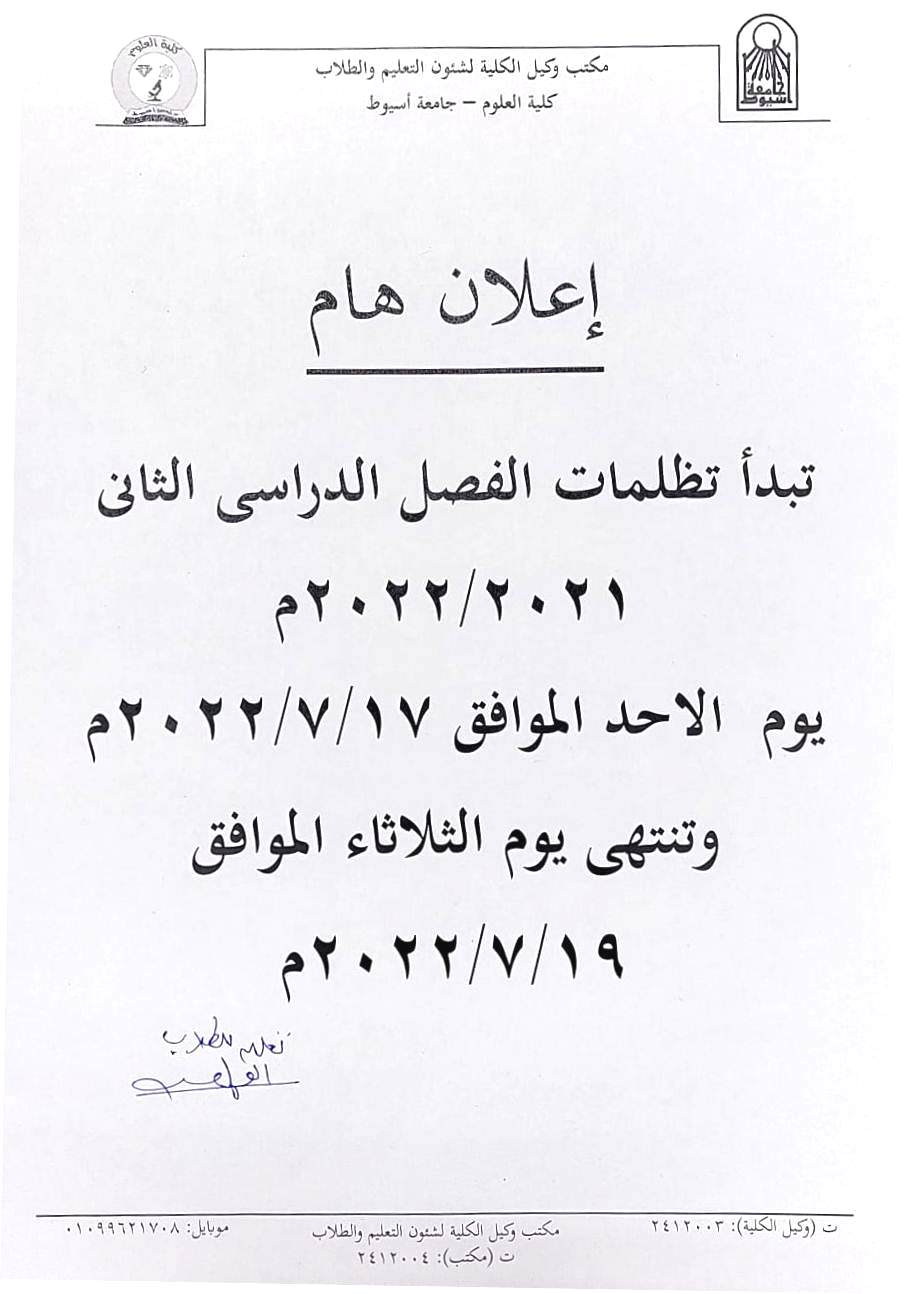 كلية العلوم
جامعة أسيوط
مكتب وكيل الكلية لشئون التعليم والطلاب
كلية العلوم – جامعة أسيوط
إعلان هام
تبدأ تظلمات الفصل الدراسى الثانى
٢٠٢٢/٢٠٢١م
يوم الاحد الموافق ٢٠٢٢/٧/١٧م
وتنتهى يوم الثلاثاء الموافق
٢٠٢٢/٧/١٩م
ت (وكيل الكلية): ٢٤١٢٠٠٣
مكتب وكيل الكلية لشئون التعليم والطلاب
موبايل: ٠١٠٩٩٦٢١٧٠٨
ت (مكتب): ٢٤١٢٠٠٤